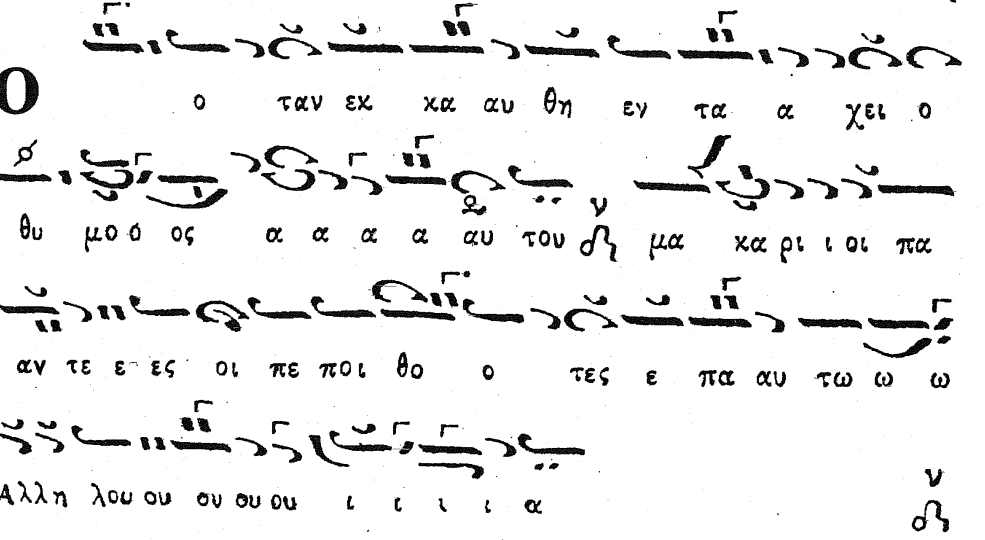 Ο ο ταν εκ κα αυ θη εν τα α χει ο
θυ μο ό ος α α α α αυ του ν μα κα ρι ι οι πα
αν τε ε ες οι πε ποι θο ο τες ε πα αυ τω ω ω
Αλλη λου ου ου ου ου ι ι ι ι α ν